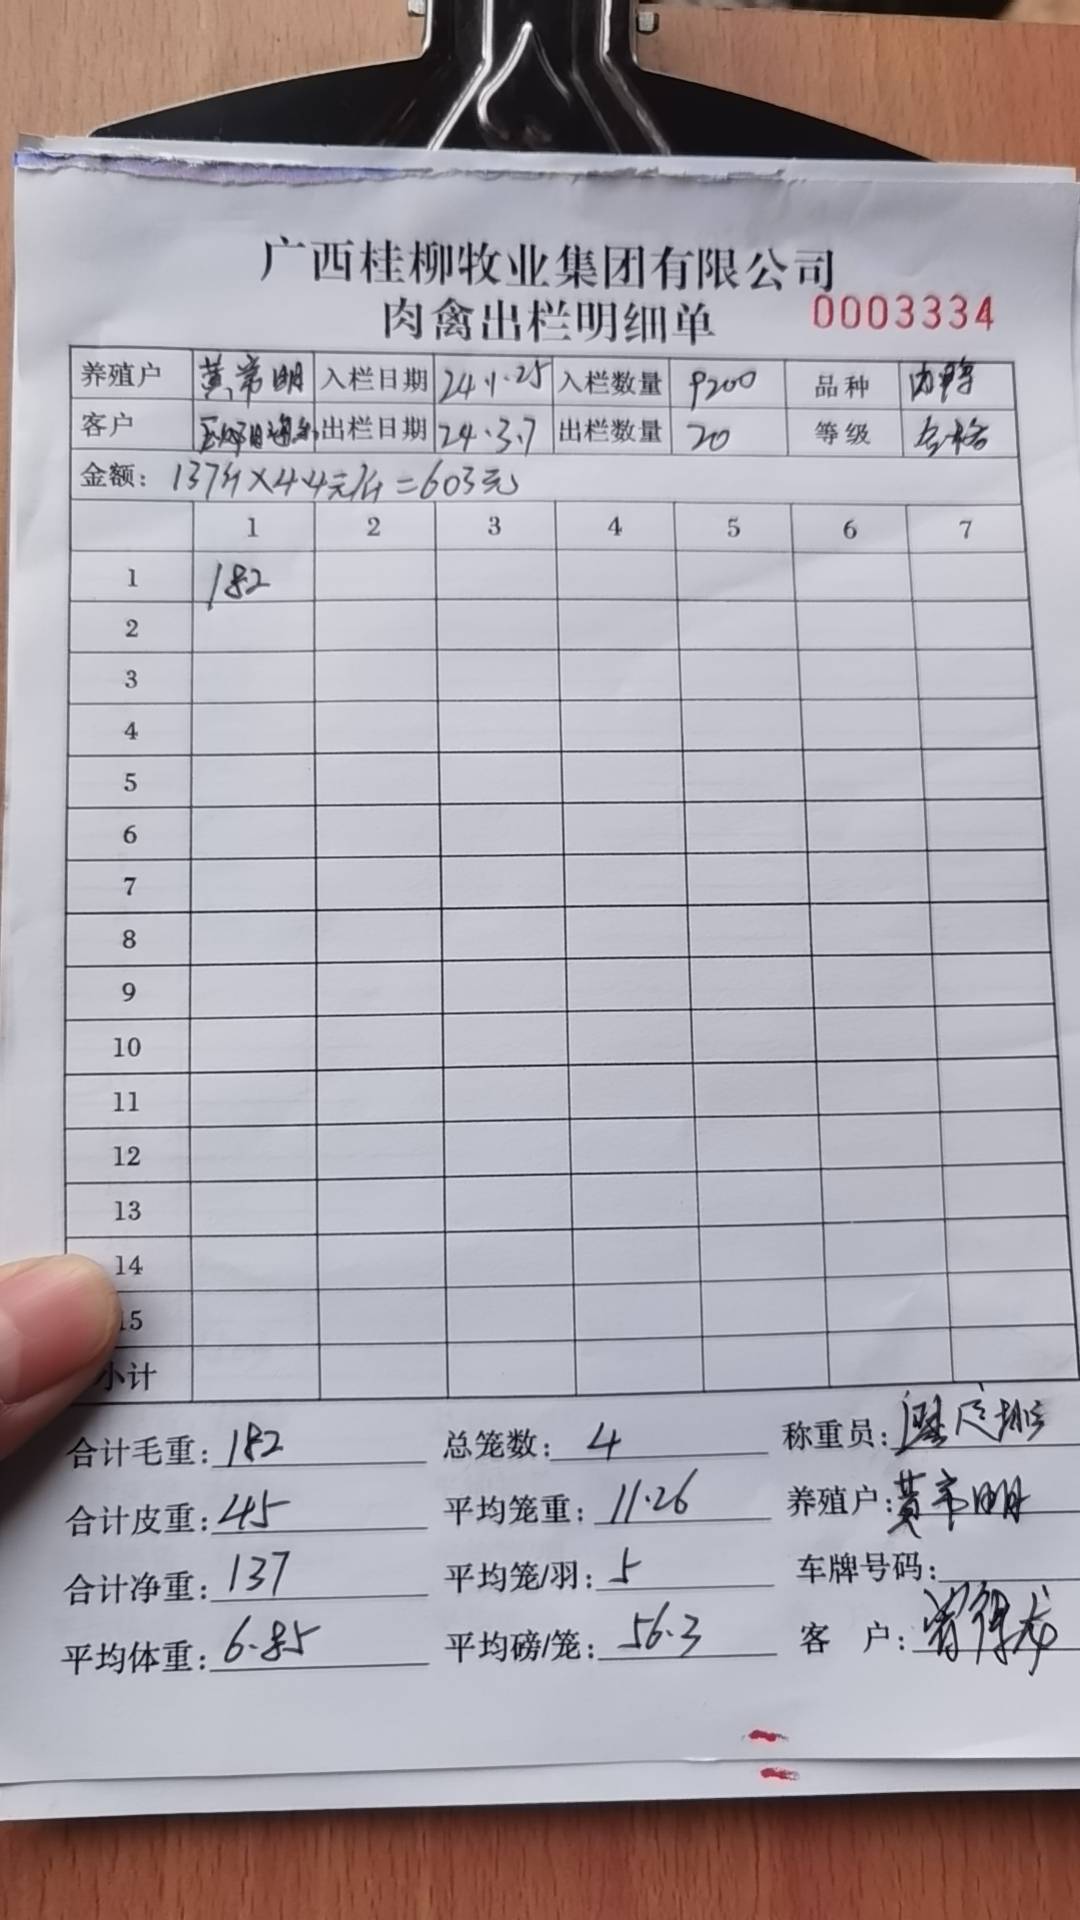 广西桂柳牧业集团有限公司
肉禽出栏明细单 0003334
养殖户 黄常明 入栏日期 24.1.25 入栏数量 9200 品种 肉鸭
客户 出栏日期 24.3.7 出栏数量 20 等级 合格
金额：137斤×4.4元/斤=603元
1 2 3 4 5 6 7
1 182
2
3
4
5
6
7
8
9
10
11
12
13
14
15
小计
合计毛重：182 总笼数：4 称重员：
合计皮重：45 平均笼重：11.26 养殖户：黄常明
合计净重：137 平均笼/羽：5 车牌号码：
平均体重：6.85 平均磅/笼：56.3 客 户：